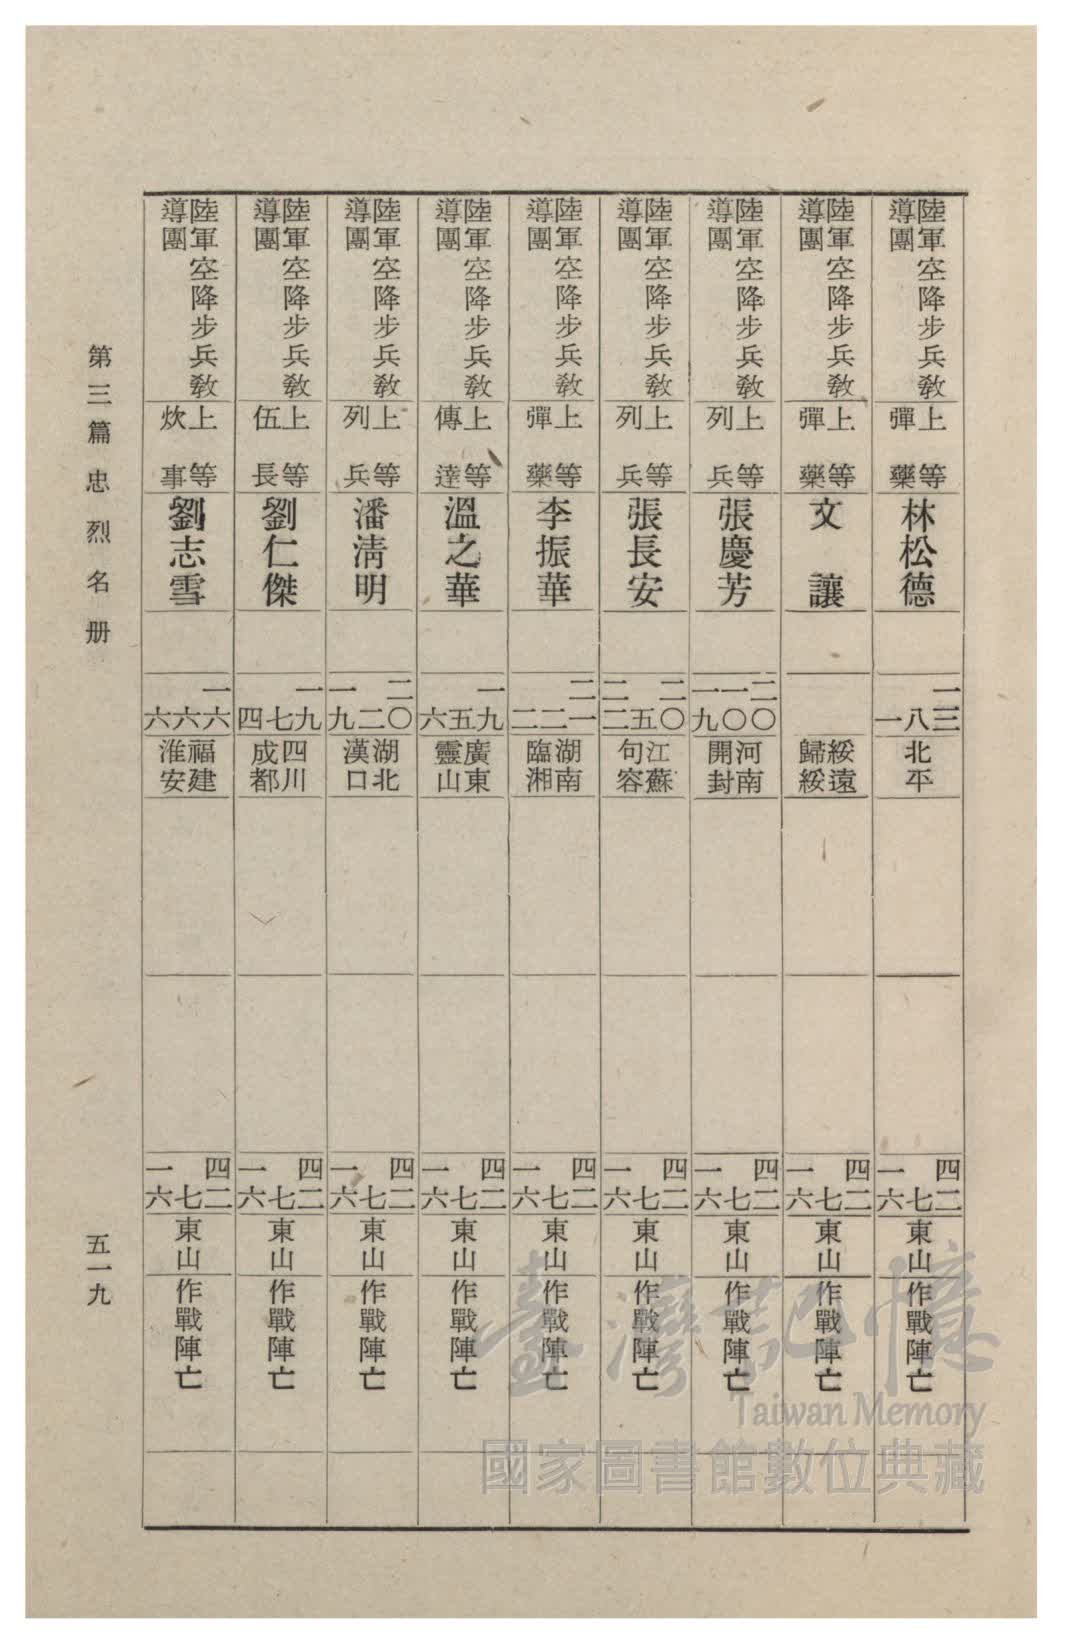 陸軍空降步兵教導團
上等彈藥
林松德
一三 八 一
北平
四二 七 一六
東山
作戰陣亡
陸軍空降步兵教導團
上等彈藥
文讓
綏遠歸綏
四二 七 一六
東山
作戰陣亡
陸軍空降步兵教導團
上等列兵
張慶芳
二〇 一〇 一九
河南開封
四二 七 一六
東山
作戰陣亡
陸軍空降步兵教導團
上等列兵
張長安
二〇 五 二二
江蘇句容
四二 七 一六
東山
作戰陣亡
陸軍空降步兵教導團
上等彈藥
李振華
二一 二 二
湖南臨湘
四二 七 一六
東山
作戰陣亡
陸軍空降步兵教導團
上等傳達
溫之華
一九 五 六
廣東靈山
四二 七 一六
東山
作戰陣亡
陸軍空降步兵教導團
上等列兵
潘淸明
二〇 二 一九
湖北漢口
四二 七 一六
東山
作戰陣亡
陸軍空降步兵教導團
上等伍長
劉仁傑
一九 七 四
四川成都
四二 七 一六
東山
作戰陣亡
陸軍空降步兵教導團
上等炊事
劉志雪
一六 六 六
福建淮安
四二 七 一六
東山
作戰陣亡
第三篇 忠烈名册
五一九
臺灣記憶
Taiwan Memory
國家圖書館數位典藏